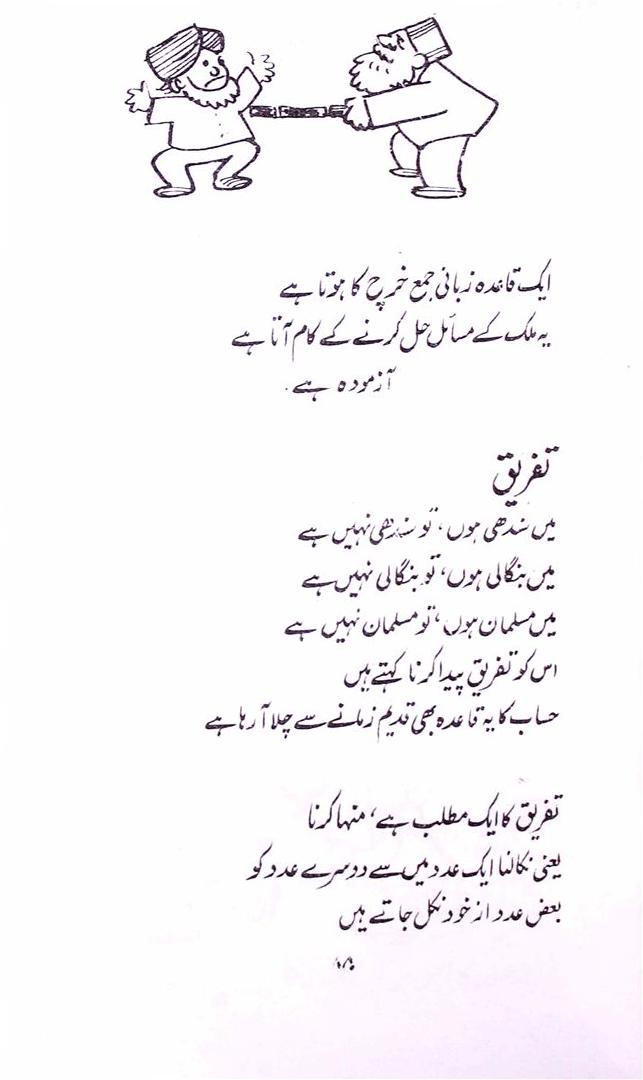 ایک قاعدہ زبانی جمع خرچ کا ہوتا ہے
یہ ملک کے مسائل حل کرنے کے کام آتا ہے
آزمودہ ہے۔
تفریق
میں سندھی ہوں، تو سندھی نہیں ہے
میں بنگالی ہوں، تو بنگالی نہیں ہے
میں مسلمان ہوں، تو مسلمان نہیں ہے
اس کو تفریق پیدا کرنا کہتے ہیں
حساب کا یہ قاعدہ بھی قدیم زمانے سے چلا آ رہا ہے
تفریق کا ایک مطلب ہے، منہا کرنا
یعنی نکالنا ایک عدد میں سے دوسرے عدد کو
بعض عدد از خود نکل جاتے ہیں